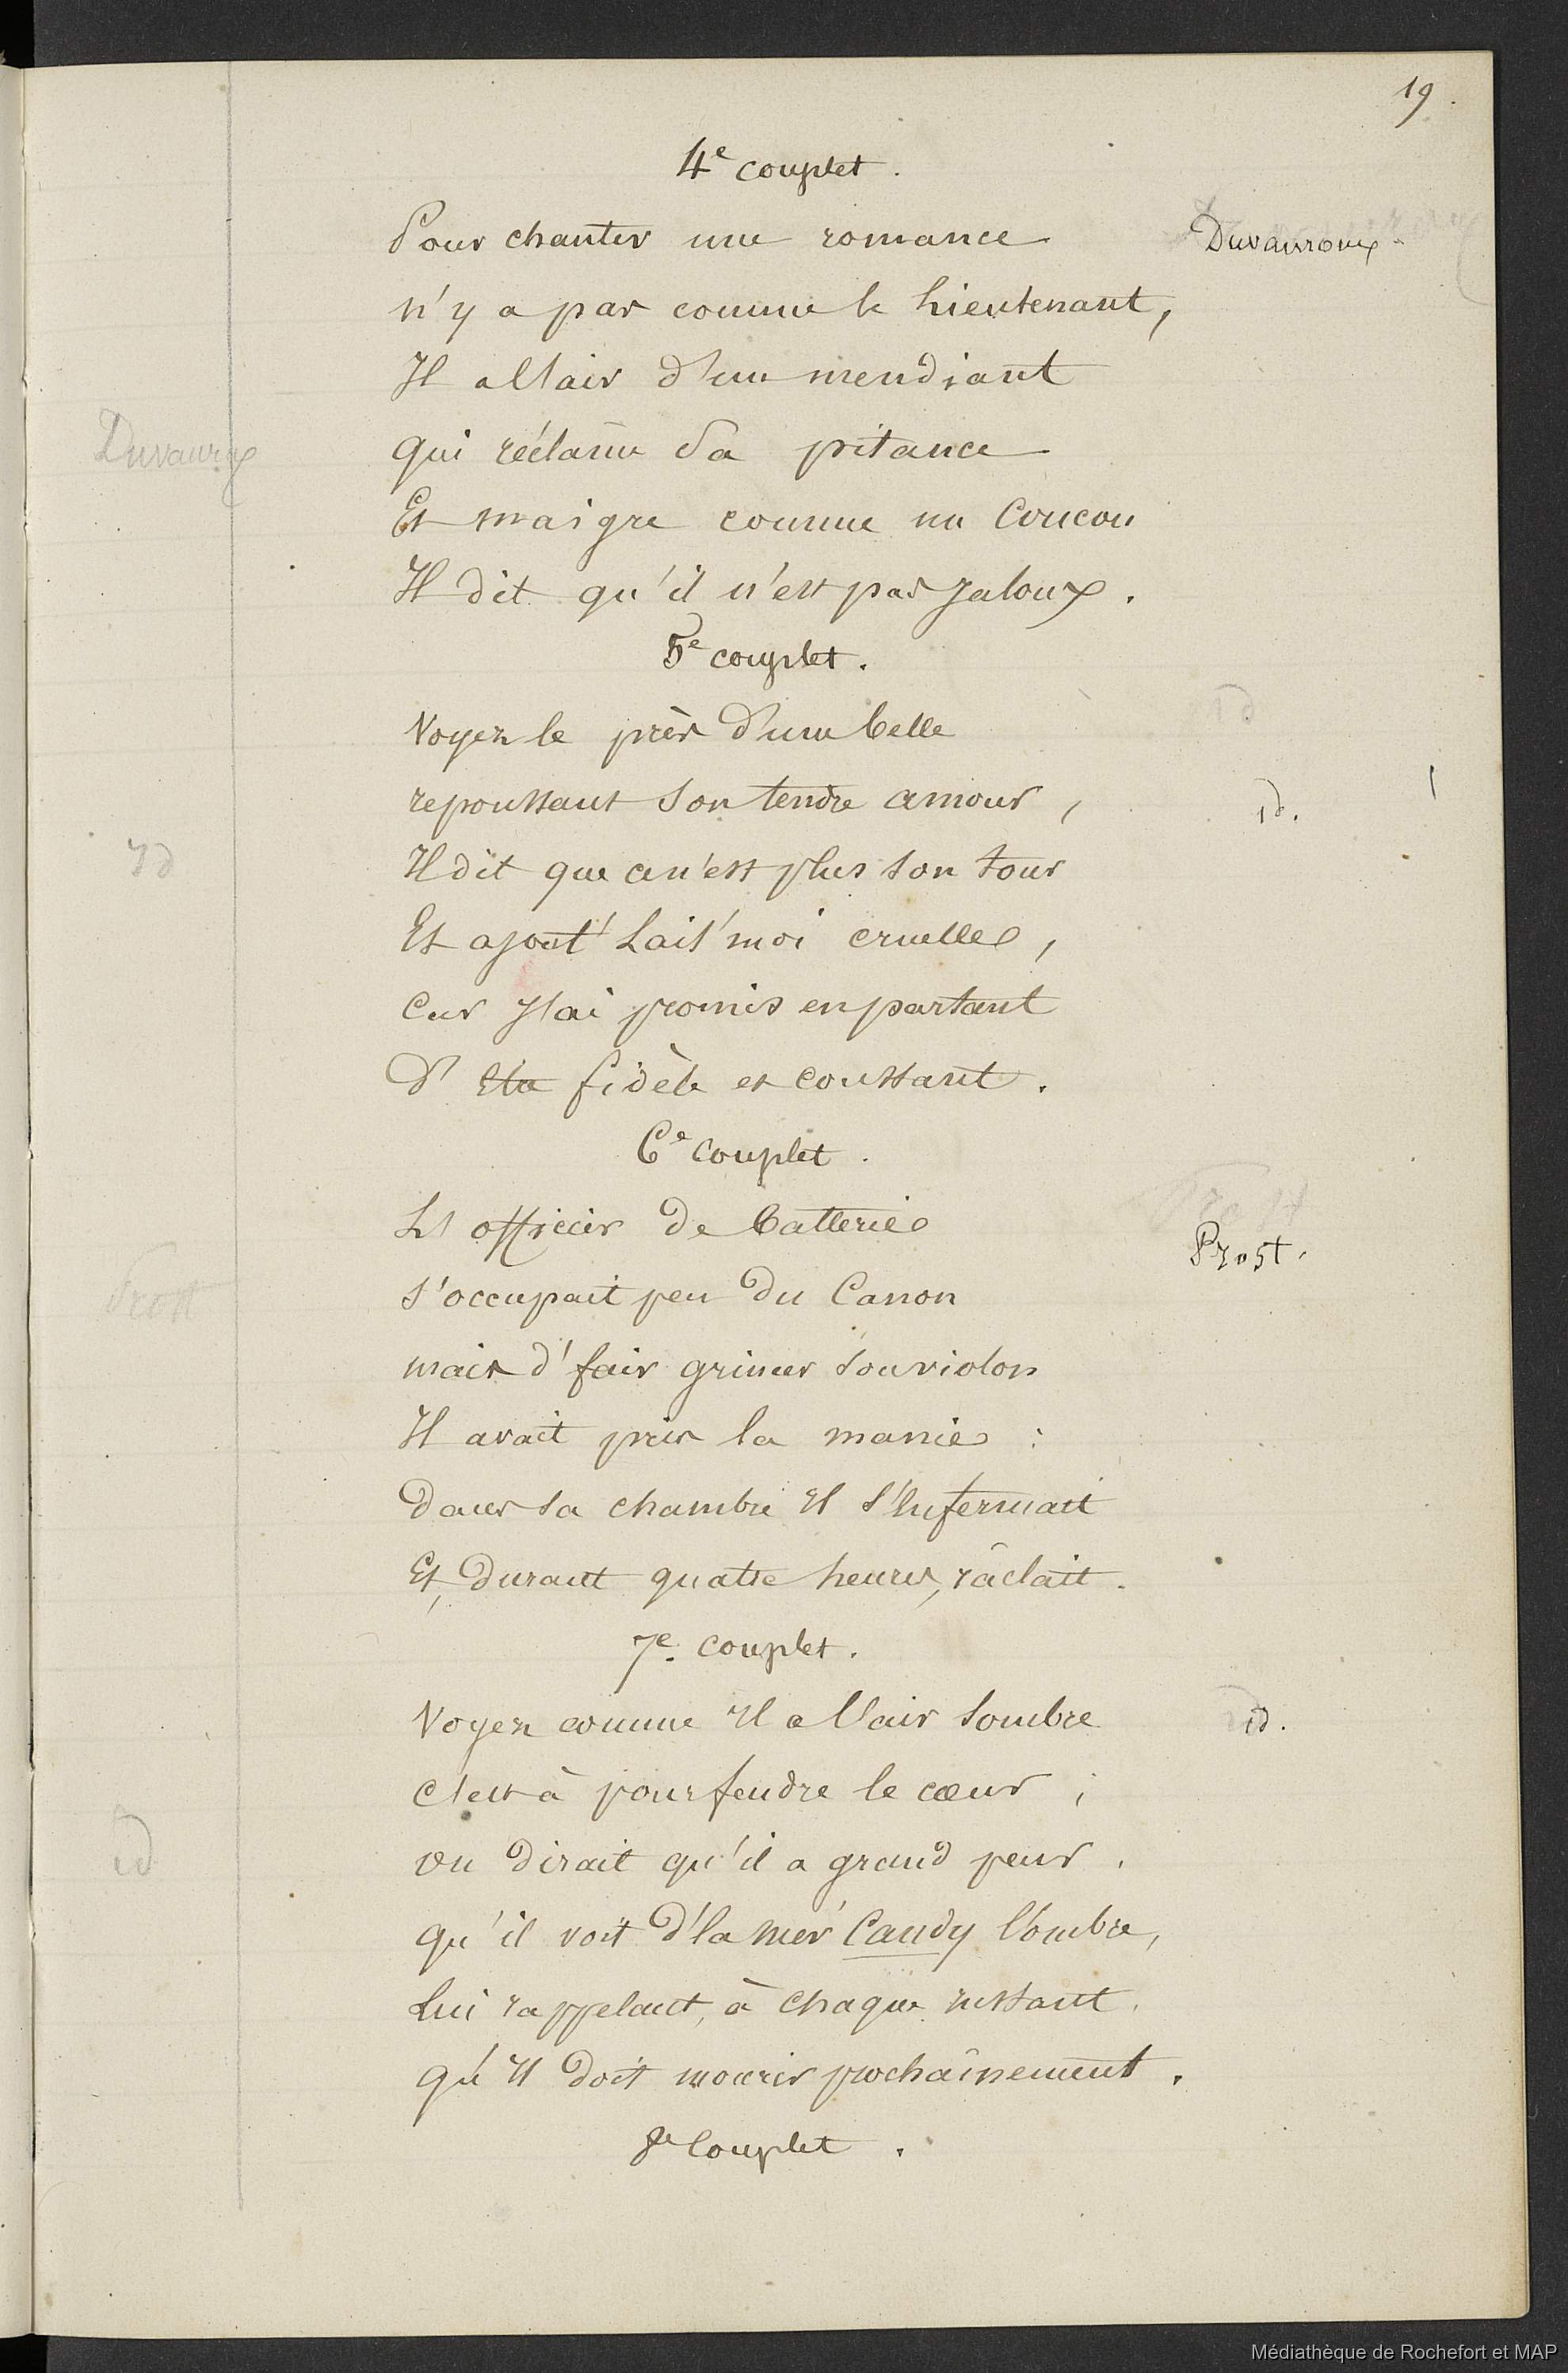 19.
4e couplet.
Pour chanter une romance
Duvauroux.
n'y a pas comme le lieutenant,
Il a l'air d'un mendiant
qui réclame sa pitance
Duvauroux
Et maigre comme un Coucou
Il dit qu'il n'est pas jaloux.
5e couplet.
Voyez le près d'une belle
id
repoussant son tendre amour,
id.
Il dit que ce n'est plus son tour
Id
Et ajout' Lais' moi cruelle,
Car j'ai promis en partant
d' être fidèle et constant.
6e couplet.
L'officier de batterie
Prost
Prost.
s'occupait peu du Canon
Prost
mais d' fair grincer son violon
Il avait pris la manie :
dans sa chambre Il s'enfermait
Et, durant quatre heures, râclait.
7e couplet.
Voyez comme Il a l'air sombre
id.
c'est à pourfendre le cœur ;
on dirait qu'il a grand peur.
id
qu'il voit d'la mèr' Candy l'ombre,
Lui rappelant, à chaque instant.
qu'Il doit mourir prochaînement.
8e Couplet.
Médiathèque de Rochefort et MAP